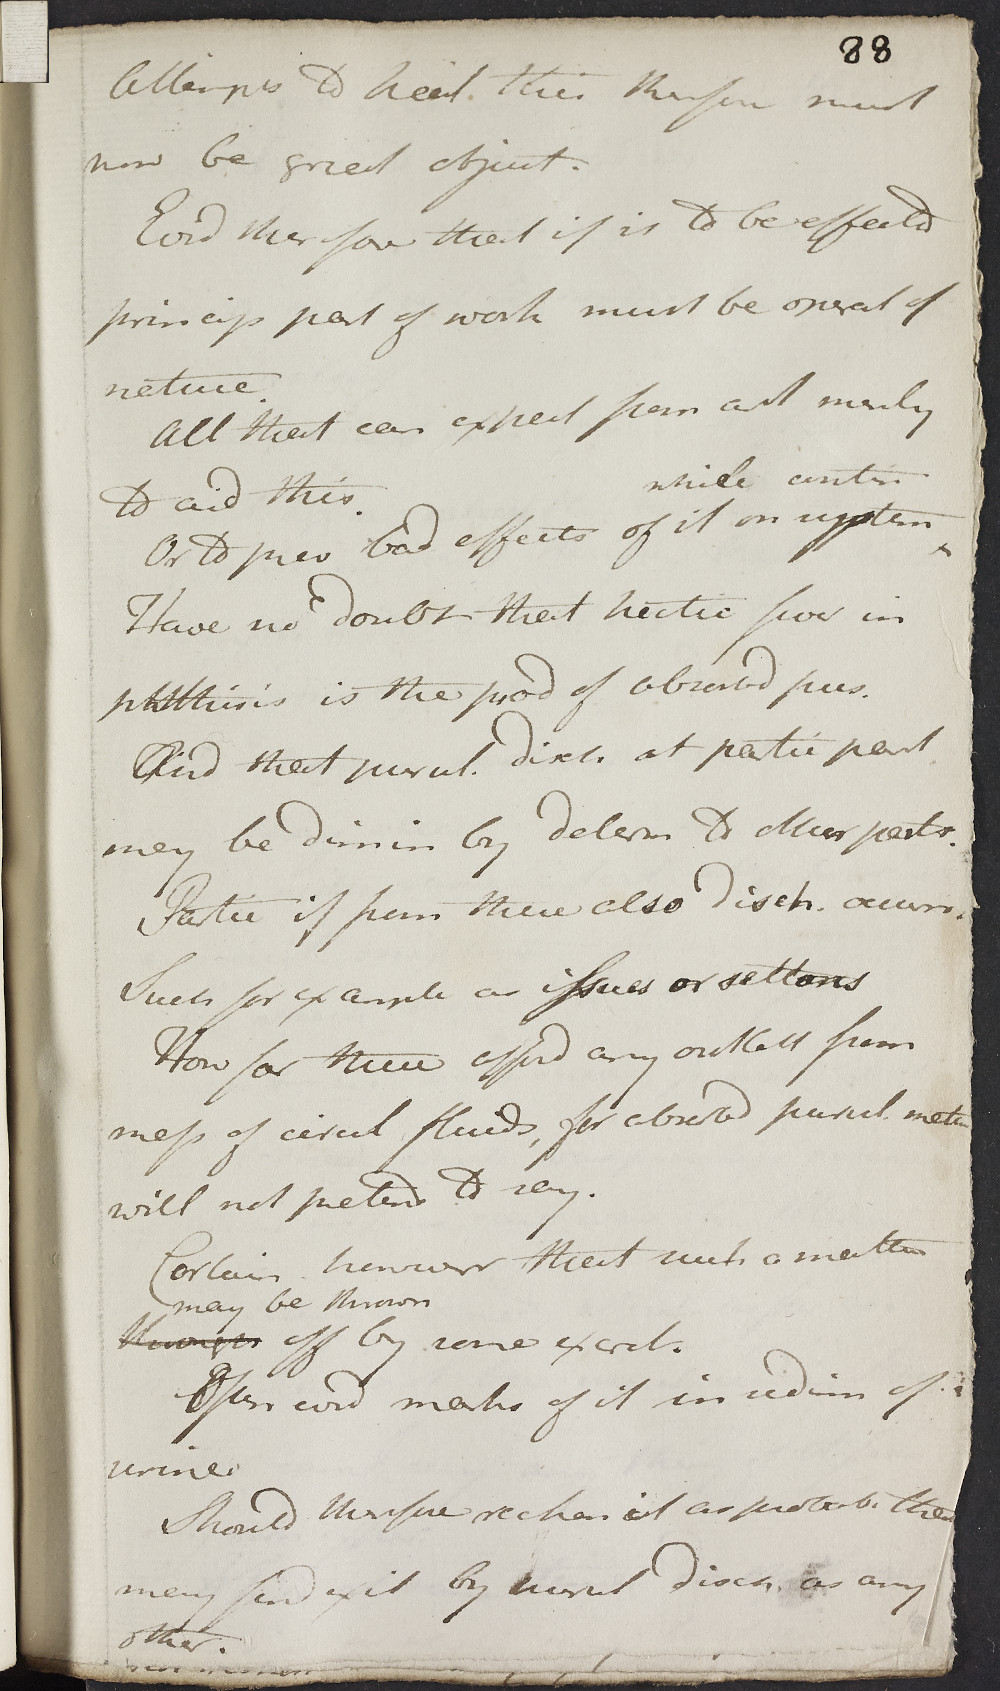 88
Attempts to heal this therefore must
now be great object.
Evid therefore that if is to be effectd
princip part of work must be operat of
nature.
All that can expect from art merely
to aid this.
while contin
Or to prev bad effects of it on system
Have no doubt that hectic fever in
phthisis is the prod of absorbd pus.
And that purul. disch. at partic part
may be dimin by determ to other parts.
Partic if from these also disch. occurs.
Such for example as issues or settons
How far these afford any outlett from
mass of circul fluids, for absorbd purul matter
will not pretend to say.
Certain however that such a matter
may be thrown
off by some excret.
Often evid marks of it in sedim of
urine.
Should therefore reckon it as probab. that
may find exit by purul disch. as any
other.